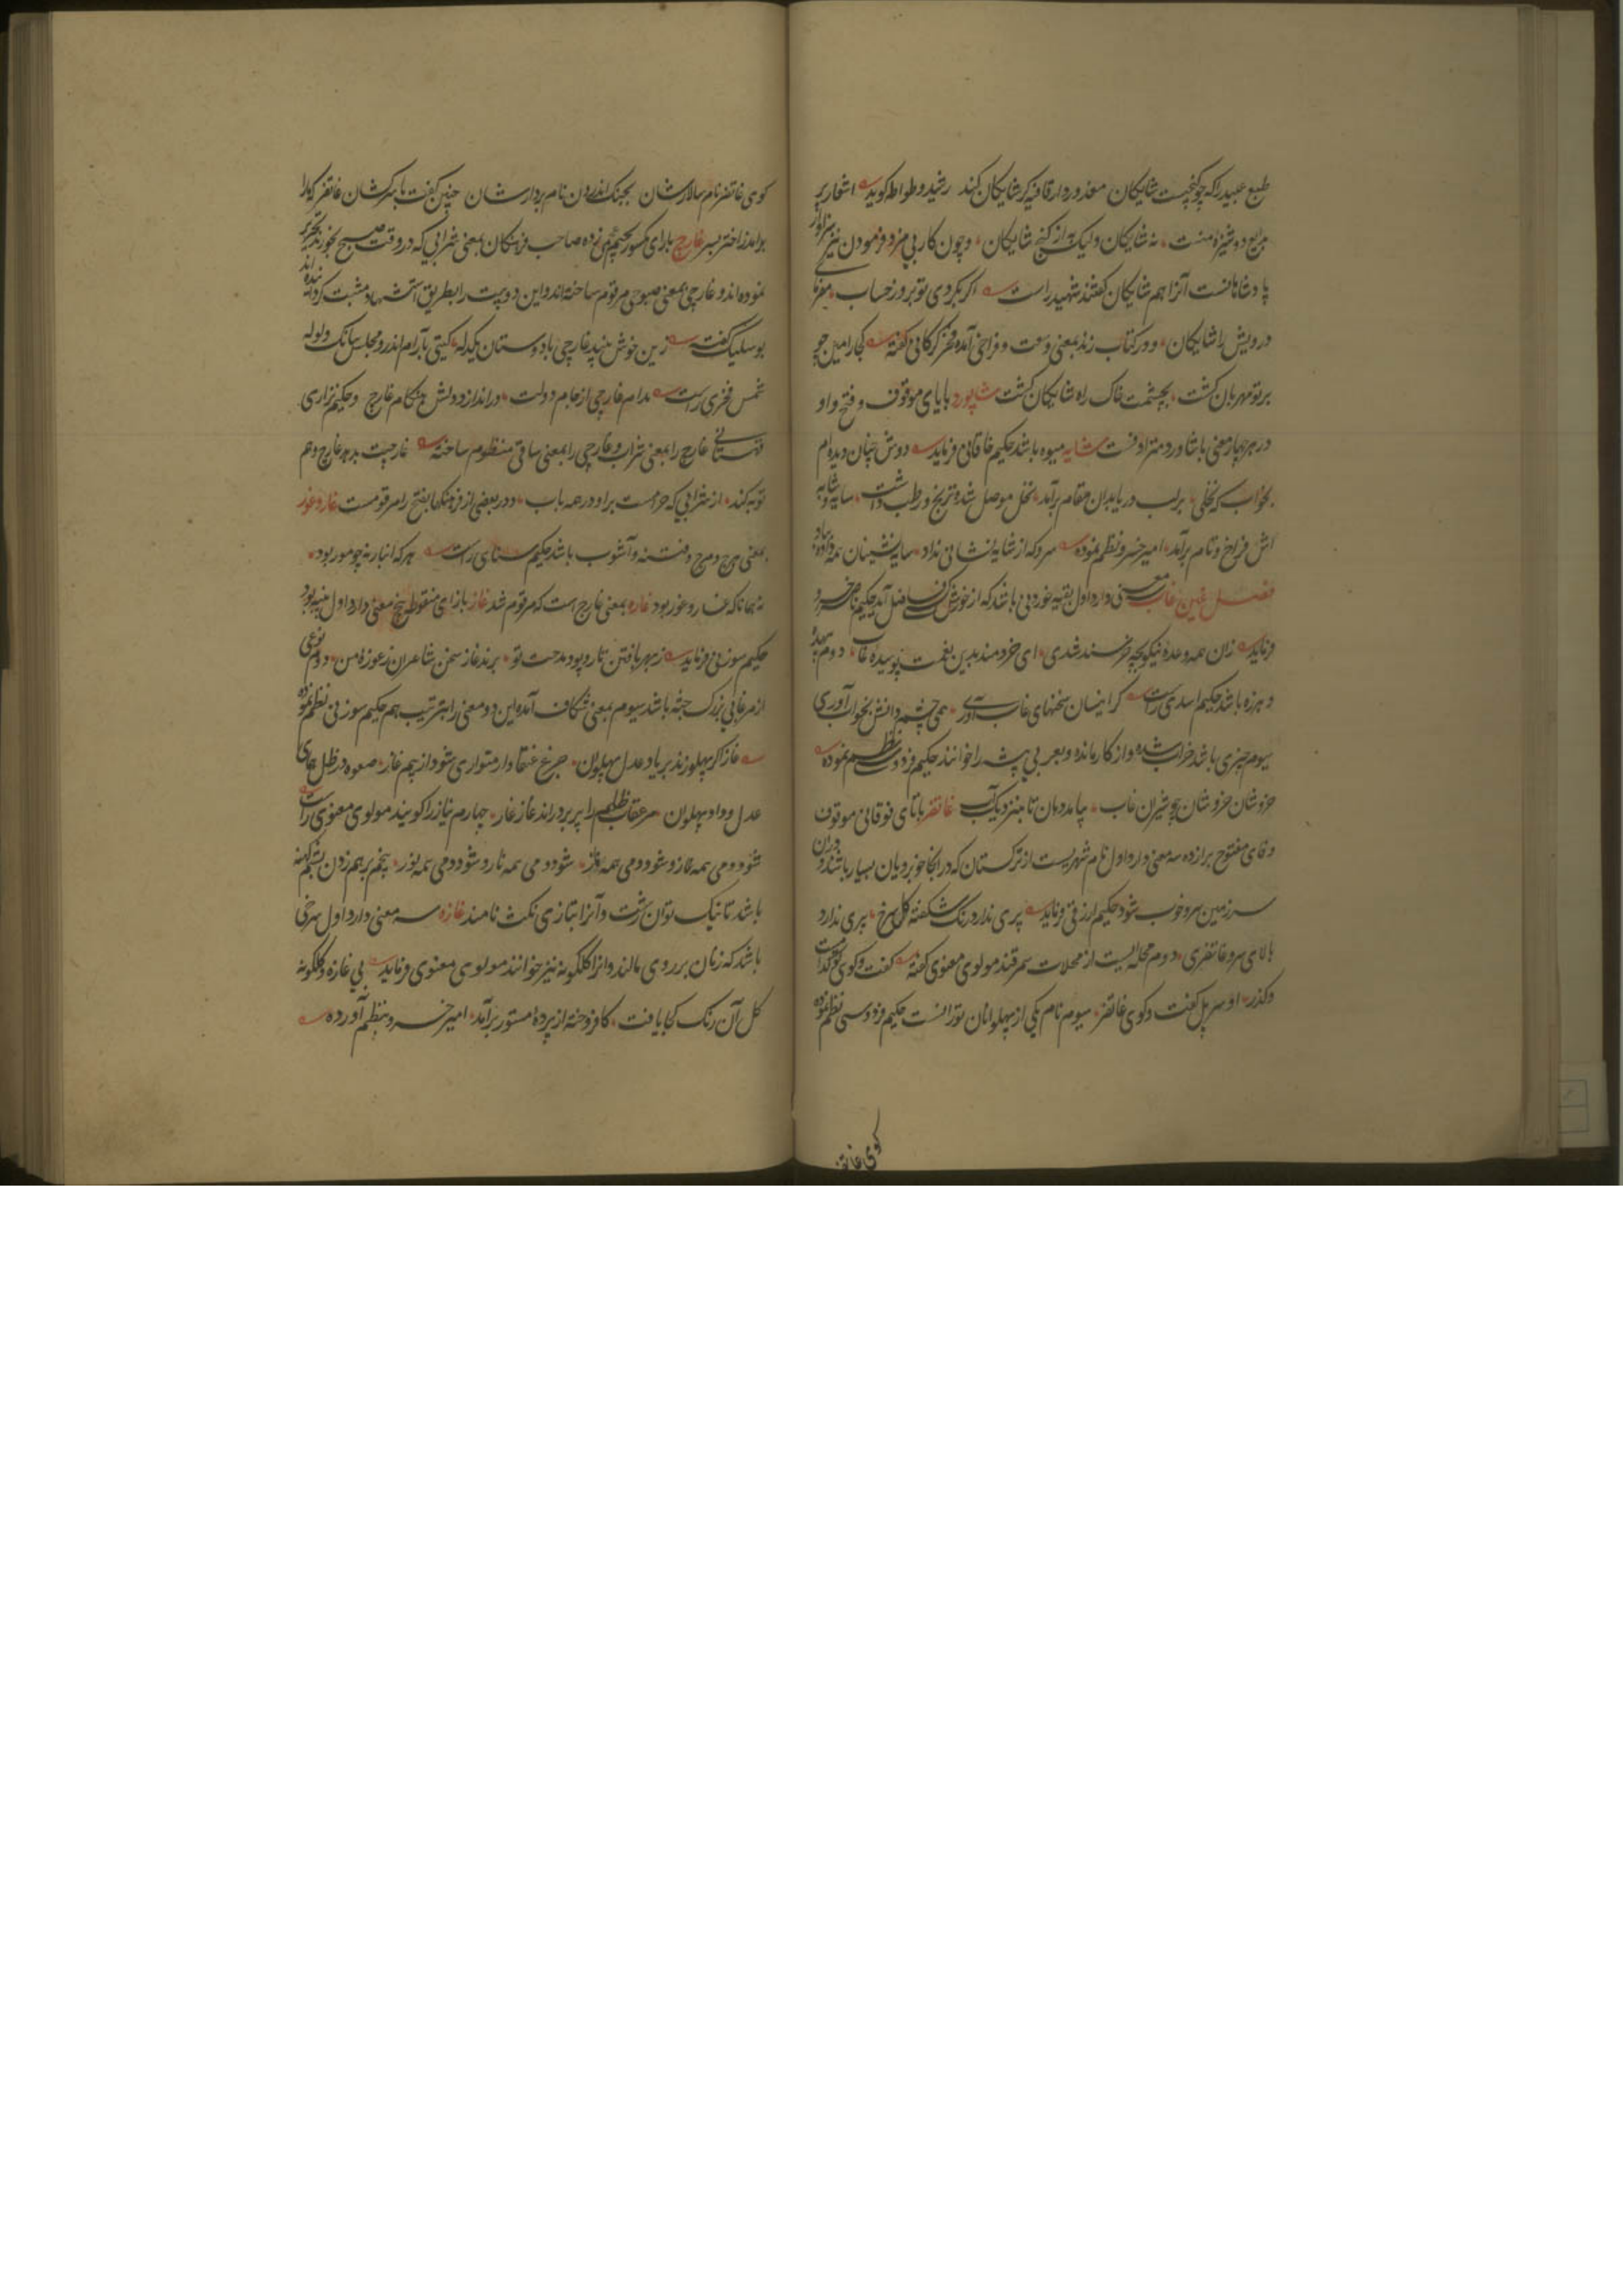 طبع عبید را که چو گنجیست شایکان معذور دار قافیه کر شایکان کند رشید وطواط کوید اشعار پر
بدایع دوشیزه منست نه شایکان ولیک به از کنج شایکان و چون کار بی مزد فرمودن نیز سزاوار
پادشاهانست آنرا هم شایکان گفتند شهید راست اکر بکردی تو بروز حساب مفرمای
درویش را شایکان و در کتاب زند بمعنی وسعت و فراخی آمده فخر کرکانی گفته کجا رامین چو
بر تو مهربان کشت بچشمت خاک راه شایکان کشت شاپورد بایای موقوف و فتح واو
در هر چهار معنی باشادورد مترادفست شایه میوه باشد حکیم خاقانی فرماید دوش چنان دیده ام
بخواب که نخلی بر لب دریا بدان مقام برآمد نخل موصل شده ترنج و رطب داشت سایه و شایه
اش فراخ و تام برآمد امیر خسرو نظم نموده سرو که از شایه نشانی نداد سایه نشینان همه را داده
فصل غین غاب سه معنی دارد اول بقیه خوردنی باشد که از خورش کسان فاضل آید حکیم ناصر خسرو
فرماید زان همه وعده نیکو بچه خرسند شدی ای خردمند بدین نعمت پوسیده غاب دوم بیهده
و هرزه باشد حکیم اسدی راست کر اینسان سخنهای غاب آوری همی چشم دانش بخواب آوری
سیوم چیزی باشد خراب شده و از کار مانده و بعربی بیشه را خوانند حکیم فردوسی نظم نموده
خروشان خروشان چو شیران غاب بیامد دمان تا بنزدیک آب غاتفر باتای فوقانی موقوف
و فای مفتوح برا زده سه معنی دارد اول نام شهریست از ترکستان که در انجا خوبرویان بسیار باشند و دران
سرزمین سرو خوب شود حکیم ازرقی فرماید پری ندارد رنگ شکفته کل سرخ پری ندارد
بالای سرو غاتفری دوم محله ایست از محلات سمرقند مولوی معنوی گفته گفت کوی او کدامست
و کذر او سر پل گفت و کوی غاتفر سیوم نام یکی از پهلوانان تورانست حکیم فردوسی نظم نموده
کوی غاتفر
کوی غاتفر نام سالارشان بجنک اندرون نام بردارشان چنین گفت با سرکشان غاتفر که ما را
برآمد زاختر بسر غارج بارای مکسور بجیم زده صاحب فرهنکان بمعنی شرابی که در وقت صبح بخورند تحریر
نموده اند و غارچی بمعنی صبوحی مرقوم ساخته اند و این دو بیت را بطریق استشهاد مثبت کردانیده اند
بوسلیک گفت زین خوش نبید غارچی با دوستان یکدله گیتی بآرام اندرو مجلس ببانک و ولوله
شمس فخری راست مدام غارچی از جام دولت دراندازد ولش هنکام غارج و حکیم نزاری
قهستانی غارج را بمعنی شراب و غارچی را بمعنی ساقی منظوم ساخته غارچیت بدهد غارج و هم
توبه کند از شرابی که حرامست براو در همه باب و در بعضی از فرهنکها بفتح را مرقومست غار و غور
بمعنی هرج و مرج و فتنه و آشوب باشد حکیم سنای راست هرکه انبارنه چو مور بود
نه همانا که غار و غور بود غاره بمعنی غارج است که مرقوم شد غاز بازای منقوطه پنج معنی دارد اول پنبه بود
حکیم سوزنی فرماید ز بهر بافتن تار و پود مدحت تو برند غاز سخن شاعران زغوزهٔ من دوم نوعی
از مرغابی بزرک جثه باشد سیوم بمعنی شکاف آمده این دو معنی را بترتیب هم حکیم سوزنی نظم نموده
غاز اکر پهلو زند بر یاد عدل پهلوان چرغ عنقاوار متواری شود از بیم غاز صعوه در ظل همای
عدل و داد پهلوان مر عقاب ظلم را پر بردراند غاز غاز چهارم نیاز را کویند مولوی معنوی راست
شود و می همه غاز و شود دمی همه غاز شود دمی همه نار و شود دمی همه نور پنجم بر هم زدن پشم کهنه
باشد تا نیک توان رشت و آنرا بتازی نکث نامند غازه سه معنی دارد اول سرخی
باشد که زنان بر روی مالند و انرا کلکونه نیز خوانند مولوی معنوی فرماید بی غازه و کلکونه
کل آن رنک کجا یافت کافروخته از پردهٔ مستور برآمد امیر خسرو بنظم آورده